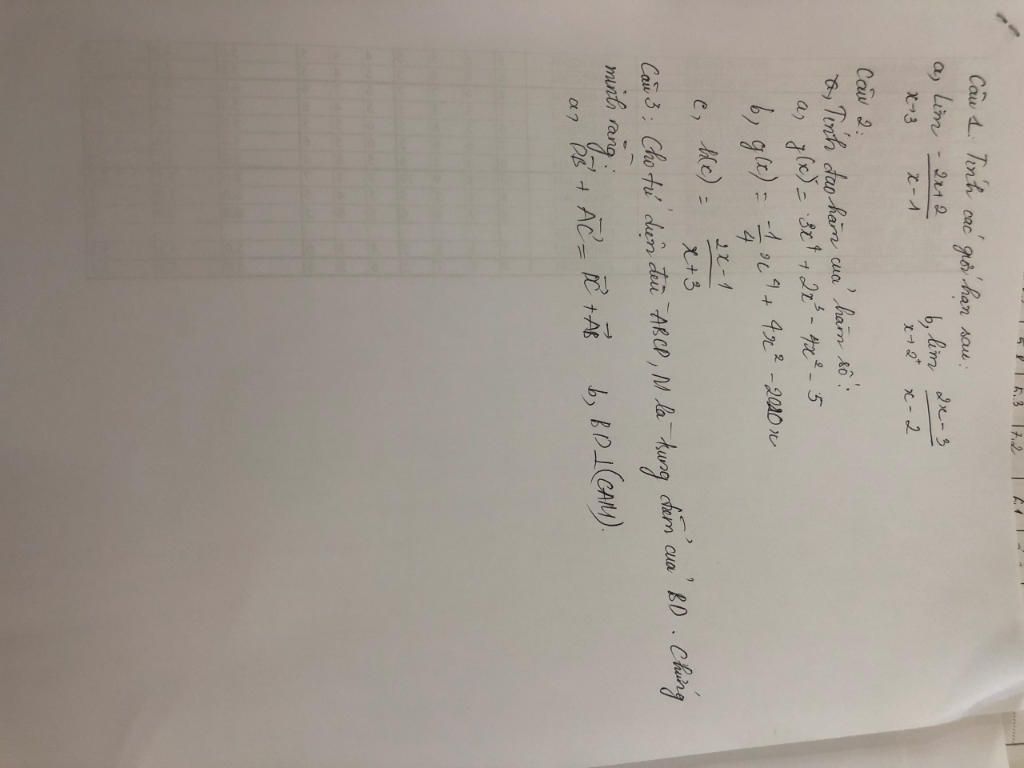 Câu 1. Tính các giới hạn sau:
a, Lim x→3 -2x+2 / x-1 b, lim x→2⁺ 2x-3 / x-2
Câu 2:
a, Tính đạo hàm của hàm số:
a, y(x) = 3x⁴ + 2x³ - 4x² - 5
b, g(x) = -1/4 x⁴ + 4x² - 2020x
c, h(x) = 2x-1 / x+3
Câu 3: Cho tứ diện đều ABCD, M là trung điểm của BD. Chứng
minh rằng
a, DB→ + AC→ = DC→ + AB→ b, BD⊥(CAM).